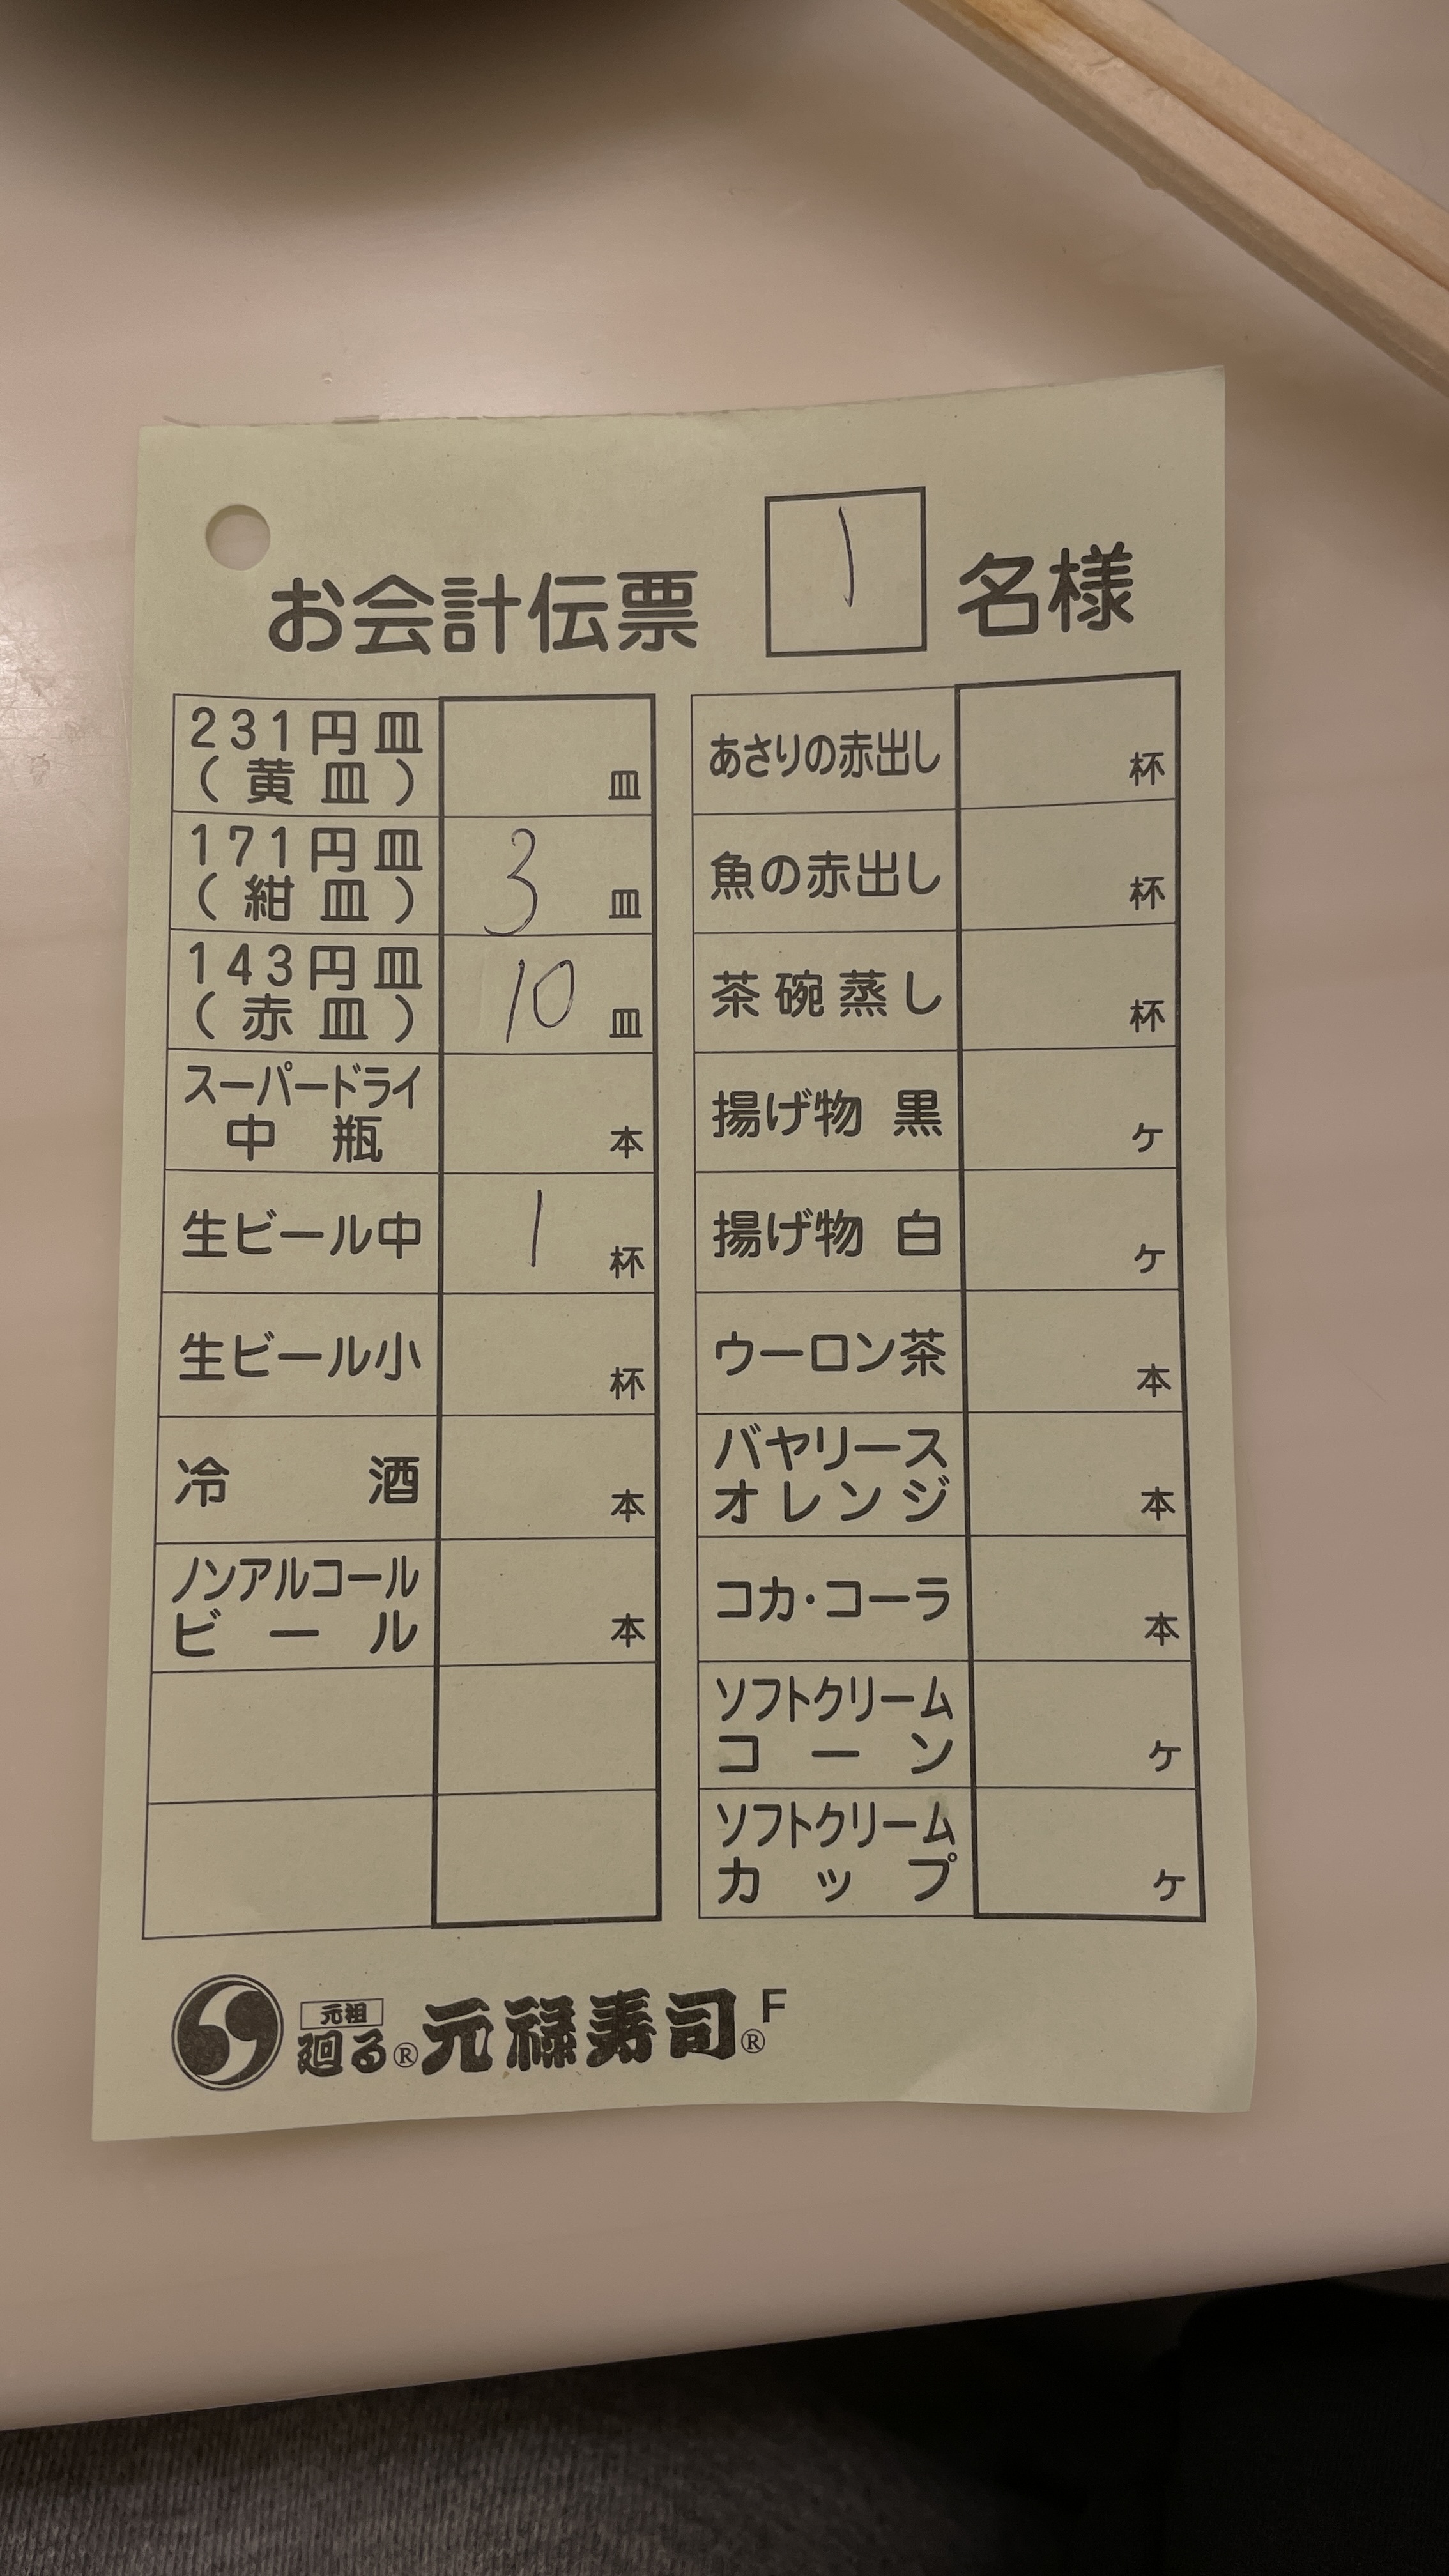 お会計伝票 1 名様
231円皿
(黄皿) 皿
171円皿
(紺皿) 3 皿
143円皿
(赤皿) 10 皿
スーパードライ
中瓶 本
生ビール中 1 杯
生ビール小 杯
冷酒 本
ノンアルコール
ビール 本
あさりの赤出し 杯
魚の赤出し 杯
茶碗蒸し 杯
揚げ物 黒 ケ
揚げ物 白 ケ
ウーロン茶 本
バヤリース
オレンジ 本
コカ・コーラ 本
ソフトクリーム
コーン ケ
ソフトクリーム
カップ ケ
元祖
廻る® 元禄寿司® F